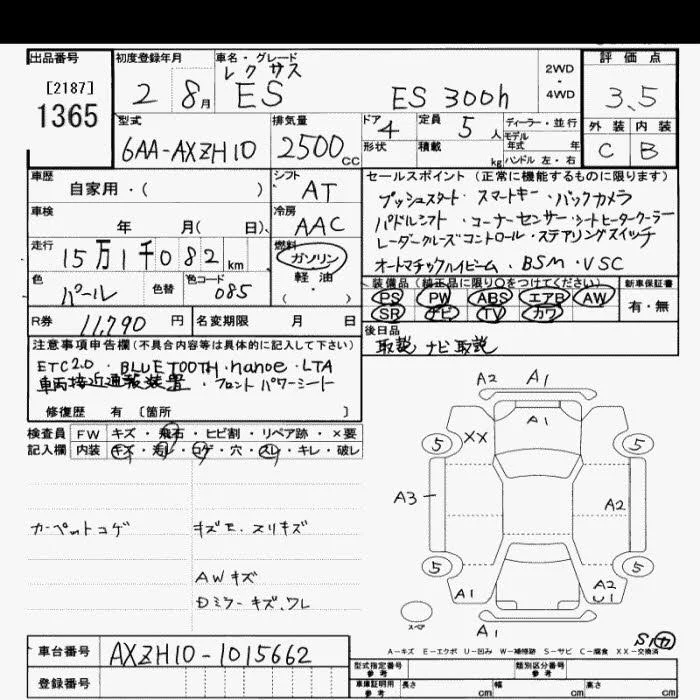 出品番号
[2187]
1365
初度登録年月
2 8月
車名・グレード
レクサス
ES ES 300h
2WD
・
4WD
評価点
3.5
外装 内装
C B
型式
6AA-AXZH10
排気量
2500cc
ドア
4
定員
5人
ディーラー・並行
モデル
年式 年
形状
積載
kg
ハンドル 左・右
車歴
自家用・( )
シフト
AT
車検
年 月( 日)、
冷房
AAC
走行
15万1千082km
燃料
ガソリン
軽油
( ・ )
色
パール
色替
色コード
085
R券 11,790 円
名変期限 月 日
セールスポイント (正常に機能するものに限ります)
プッシュスタート・スマートキー・バックカメラ
パドルシフト・コーナーセンサー・シートヒータークーラー
レーダークルーズコントロール・ステアリングスイッチ
オートマチックハイビーム・BSM・VSC
装備品 (純正品に限り○をつけてください)
PS PW ABS エアB AW
SR ナビ TV カワ
新車保証書
有・無
後日品
取説 ナビ取説
注意事項申告欄(不具合内容等は具体的に記入して下さい)
ETC2.0・BLUETOOTH・nanoe・LTA
車両接近通報装置・フロントパワーシート
修復歴 有 〔箇所 〕
検査員
記入欄
FW キズ・飛石・ヒビ割・リペア跡・×要
内装 キズ・汚レ・コゲ・穴・スレ・キレ・破レ
カーペットコゲ
キズモ・スリキズ
AWキズ
Dミラーキズ、ワレ
A2 A1
A1
XX
5 5
A3
A2
5 5
A1
A2
U1
スペア
A1
A-キズ E-エクボ U-凹み W-補修跡 S-サビ C-腐食 XX-交換済
車台番号 AXZH10-1015662
登録番号
型式指定番号
参考
類別区分番号
参考
車庫証明用
参考
長さ cm
幅 cm
高さ cm